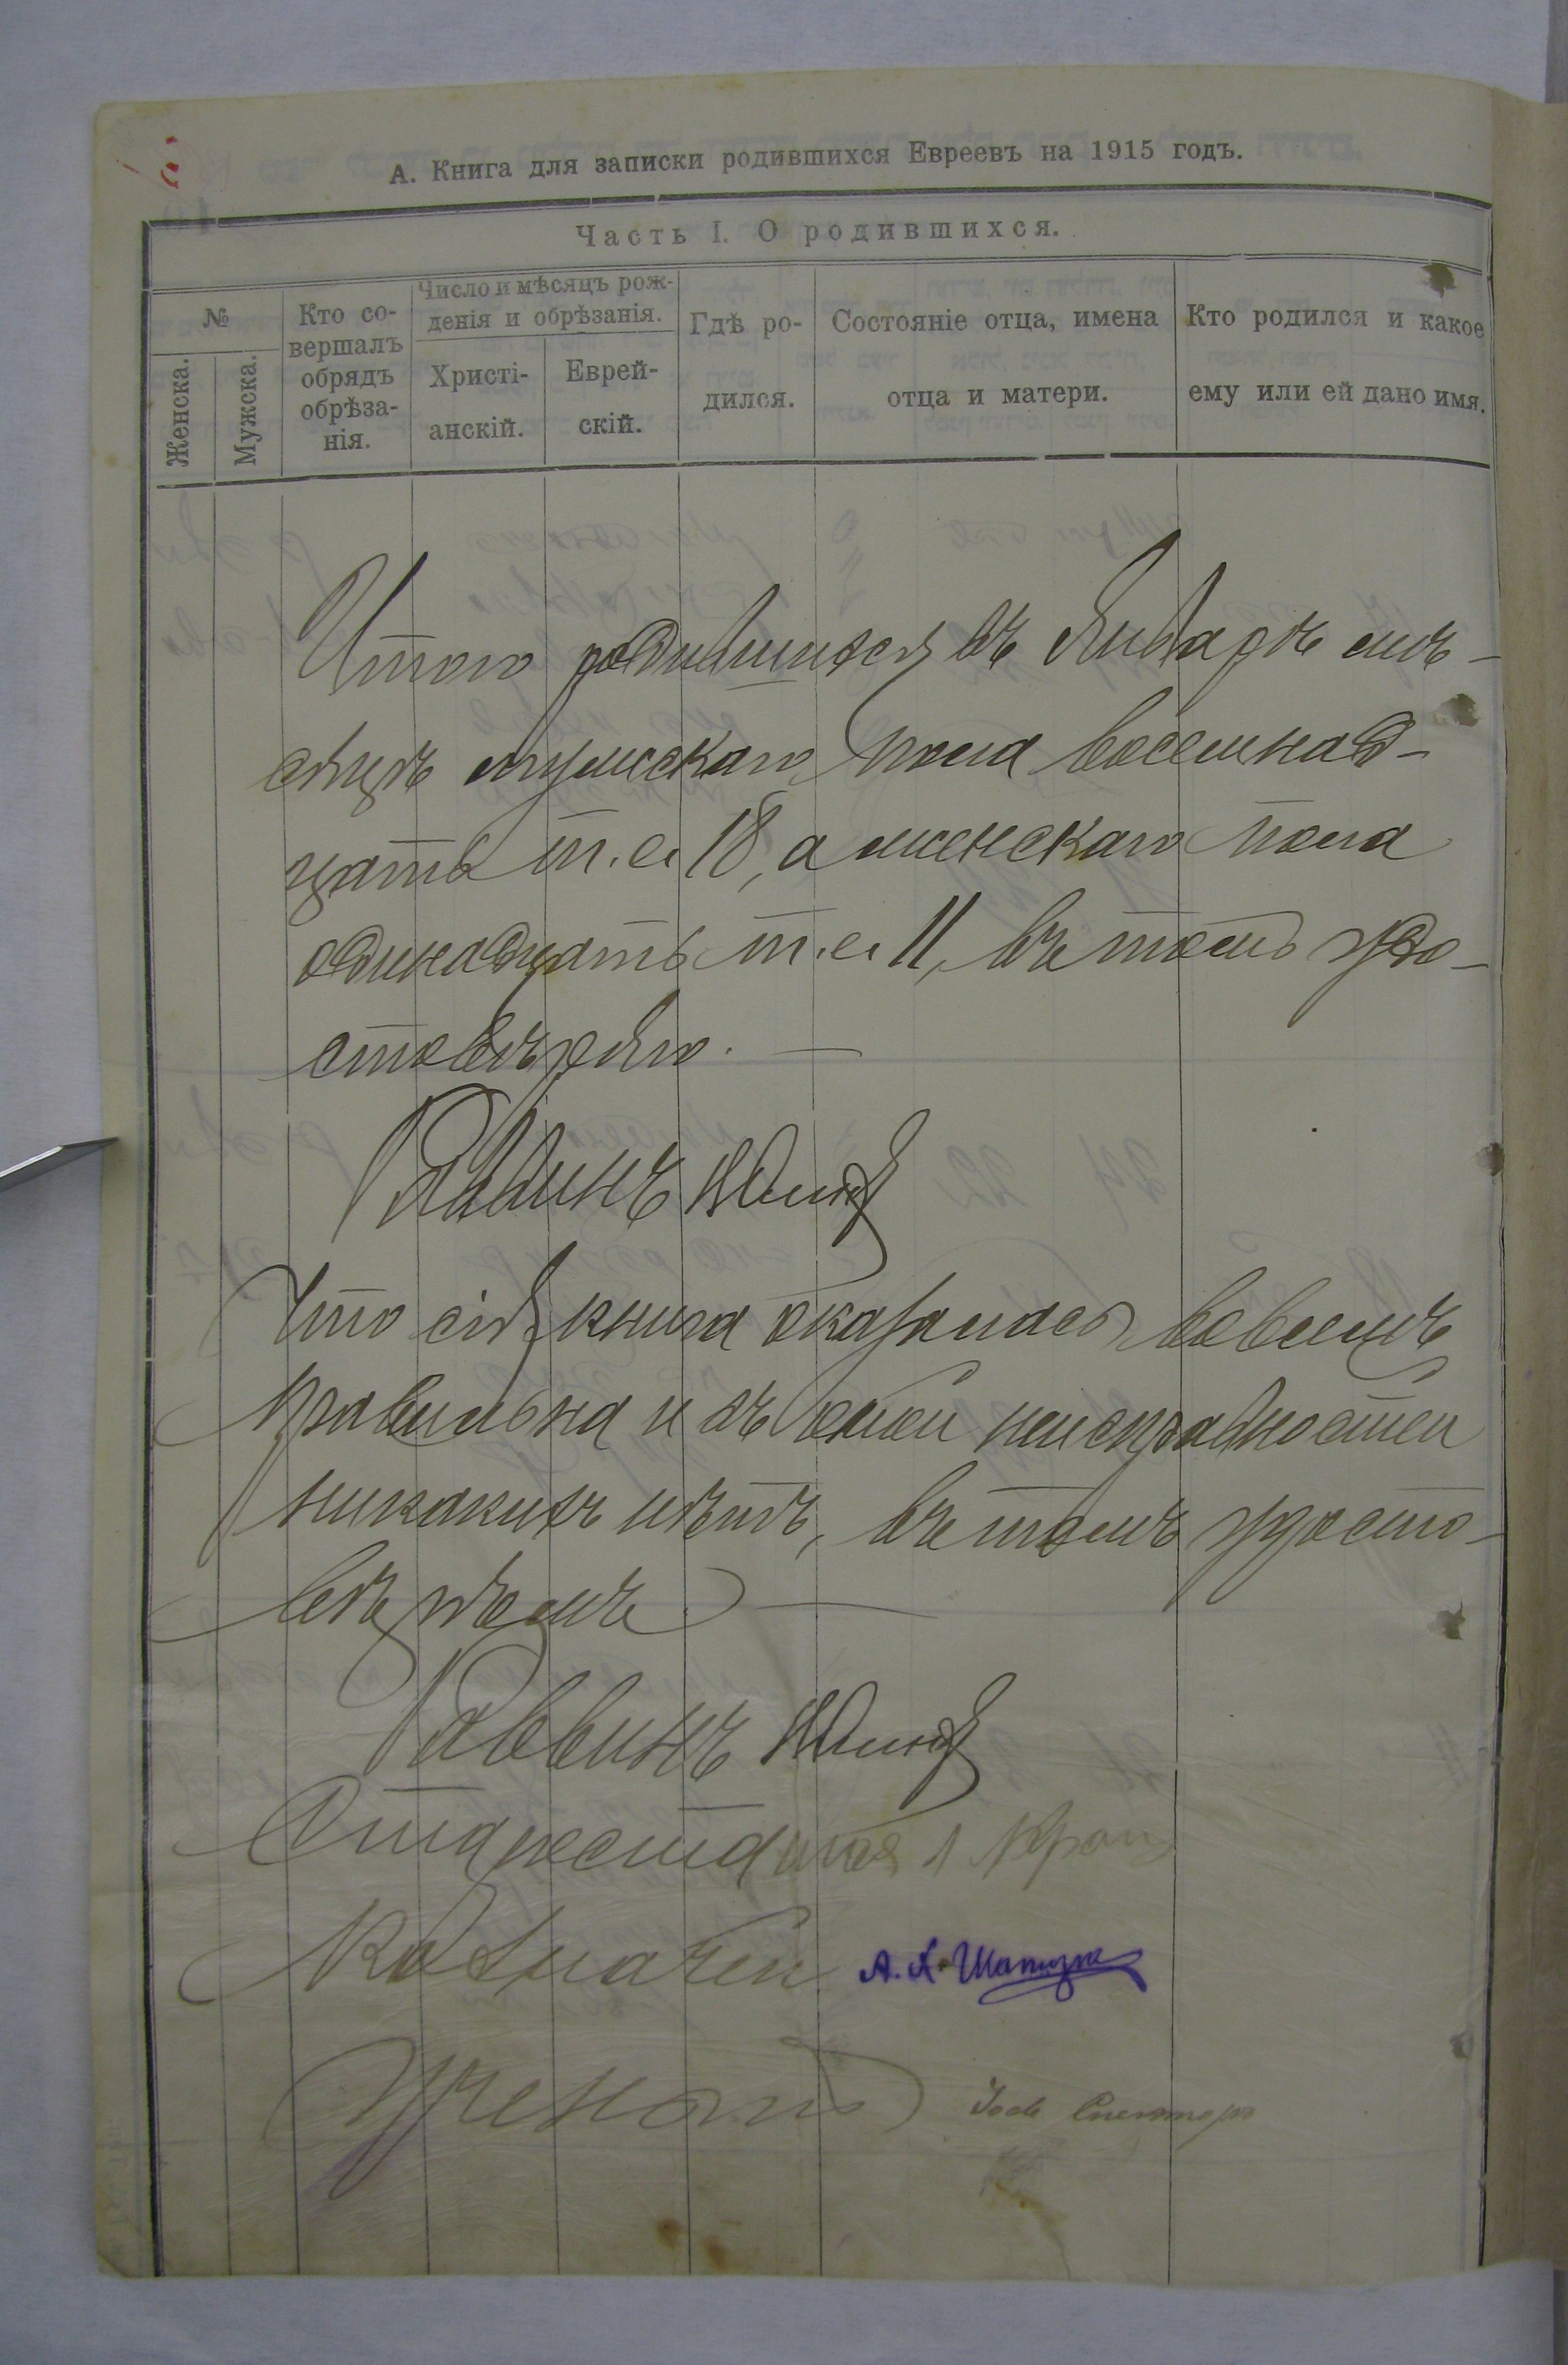 А. Книга для записки родившихся Евреевъ на 1915 годъ.
Часть I. О родившихся.
№
Женска.
Мужска.
Кто со-
вершалъ
обрядъ
обрѣза-
нія.
Число и мѣсяцъ рож-
денія и обрѣзанія.
Христі-
анскій.
Еврей-
скій.
Гдѣ ро-
дился.
Состояніе отца, имена
отца и матери.
Кто родился и какое
ему или ей дано имя.
Итого родившихся въ Январѣ мѣ-
сяцѣ мужскаго пола восемнад-
цать т.е. 18, а женскаго пола
одинадцать т.е. 11, въ томъ удо-
стовѣряю.
Раввинъ
Что сія книга оказалась вовсемъ
правильна и въ оной неисправностей
никакихъ нѣтъ, въ томъ удосто-
вѣряемъ
Раввинъ
Староста
Казначей А. Х. Шапиро
Ученый